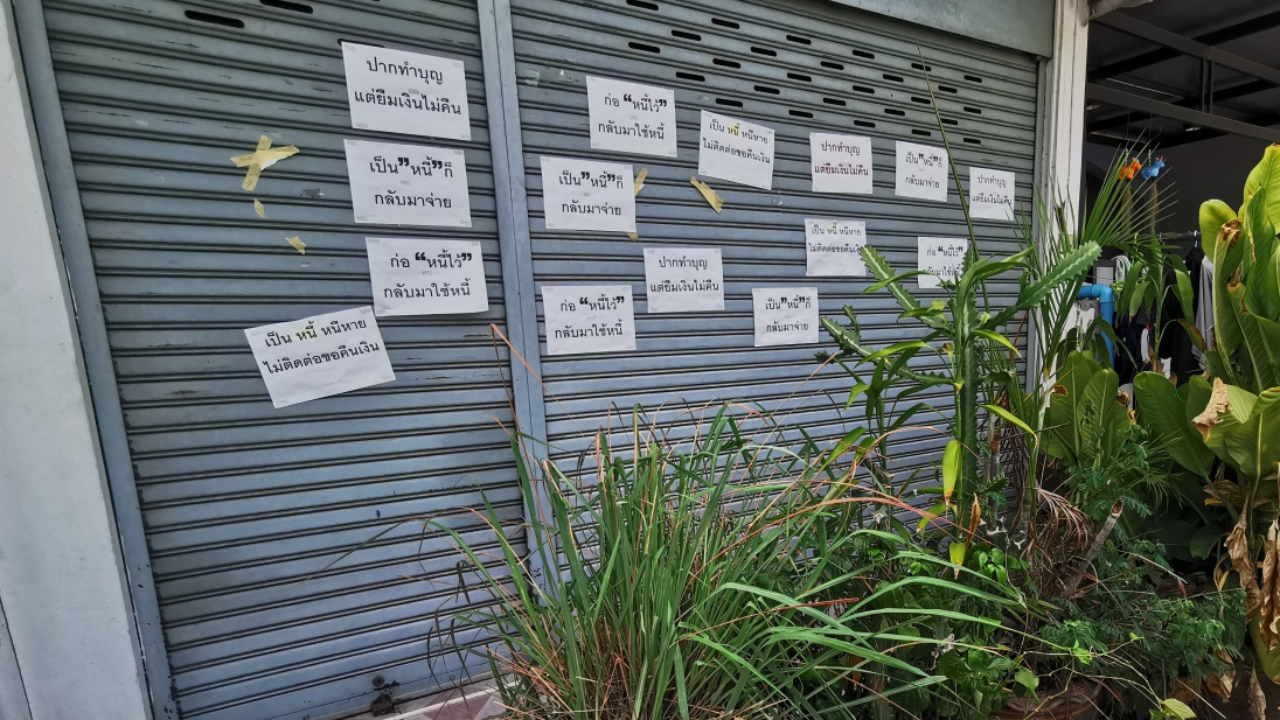 ปากทำบุญ
แต่ยืมเงินไม่คืน
เป็น"หนี้"ก็
กลับมาจ่าย
ก่อ "หนี้ไว้"
กลับมาใช้หนี้
เป็น หนี้ หนีหาย
ไม่ติดต่อขอคืนเงิน
ก่อ "หนี้ไว้"
กลับมาใช้หนี้
เป็น หนี้ หนีหาย
ไม่ติดต่อขอคืนเงิน
ปากทำบุญ
แต่ยืมเงินไม่คืน
เป็น"หนี้"ก็
กลับมาจ่าย
ปากทำบุญ
แต่ยืมเงินไม่คืน
เป็น"หนี้"ก็
กลับมาจ่าย
เป็น หนี้ หนีหาย
ไม่ติดต่อขอคืนเงิน
ก่อ "หนี้ไว้"
กลับมาใช้หนี้
ปากทำบุญ
แต่ยืมเงินไม่คืน
ก่อ "หนี้ไว้"
กลับมาใช้หนี้
เป็น"หนี้"ก็
กลับมาจ่าย